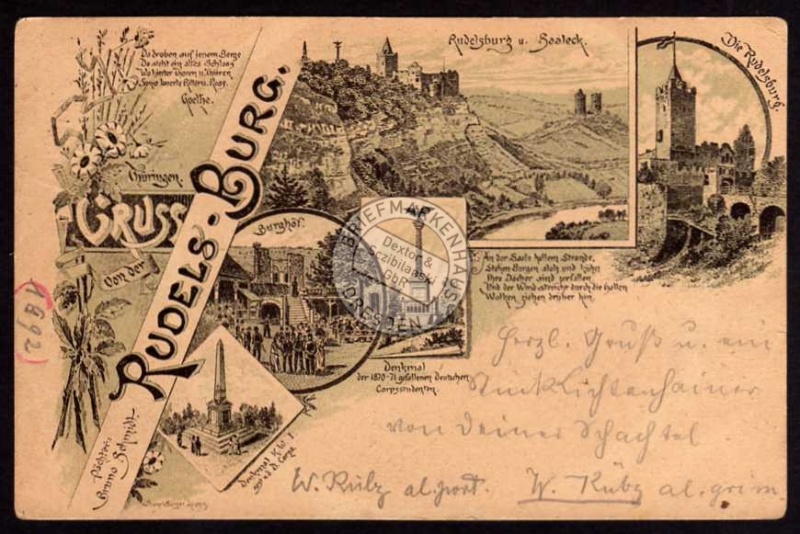 Da droben auf jenem Berge
Da steht ein altes Schloss
Wo hinter Thoren u. Thüren
Sonst lauerte Ritter u. Ross.
Goethe.
Thüringen.
GRUSS
von der
RUDELS-BURG.
Rudelsburg u. Saaleck.
Die Rudelsburg.
An der Saale hellem Strande,
Stehen Burgen stolz und kühn
Ihre Dächer sind zerfallen
Und der Wind streicht durch die Hallen
Wolken ziehen drüber hin.
Burghof.
Denkmal
der 1870-71 gefallenen deutschen
Corpsstudenten.
Denkmal K. W. I
Pächter:
Bruno Schmidt
BRIEFMARKENHAUS
Dexton &
Szibilanski
GbR
DRESDEN
1892)
Herzl. Gruß u. ein
Lichtenhainer
von Deiner Schachtel
W. Kübz al. port. W. Kübz al. grim.